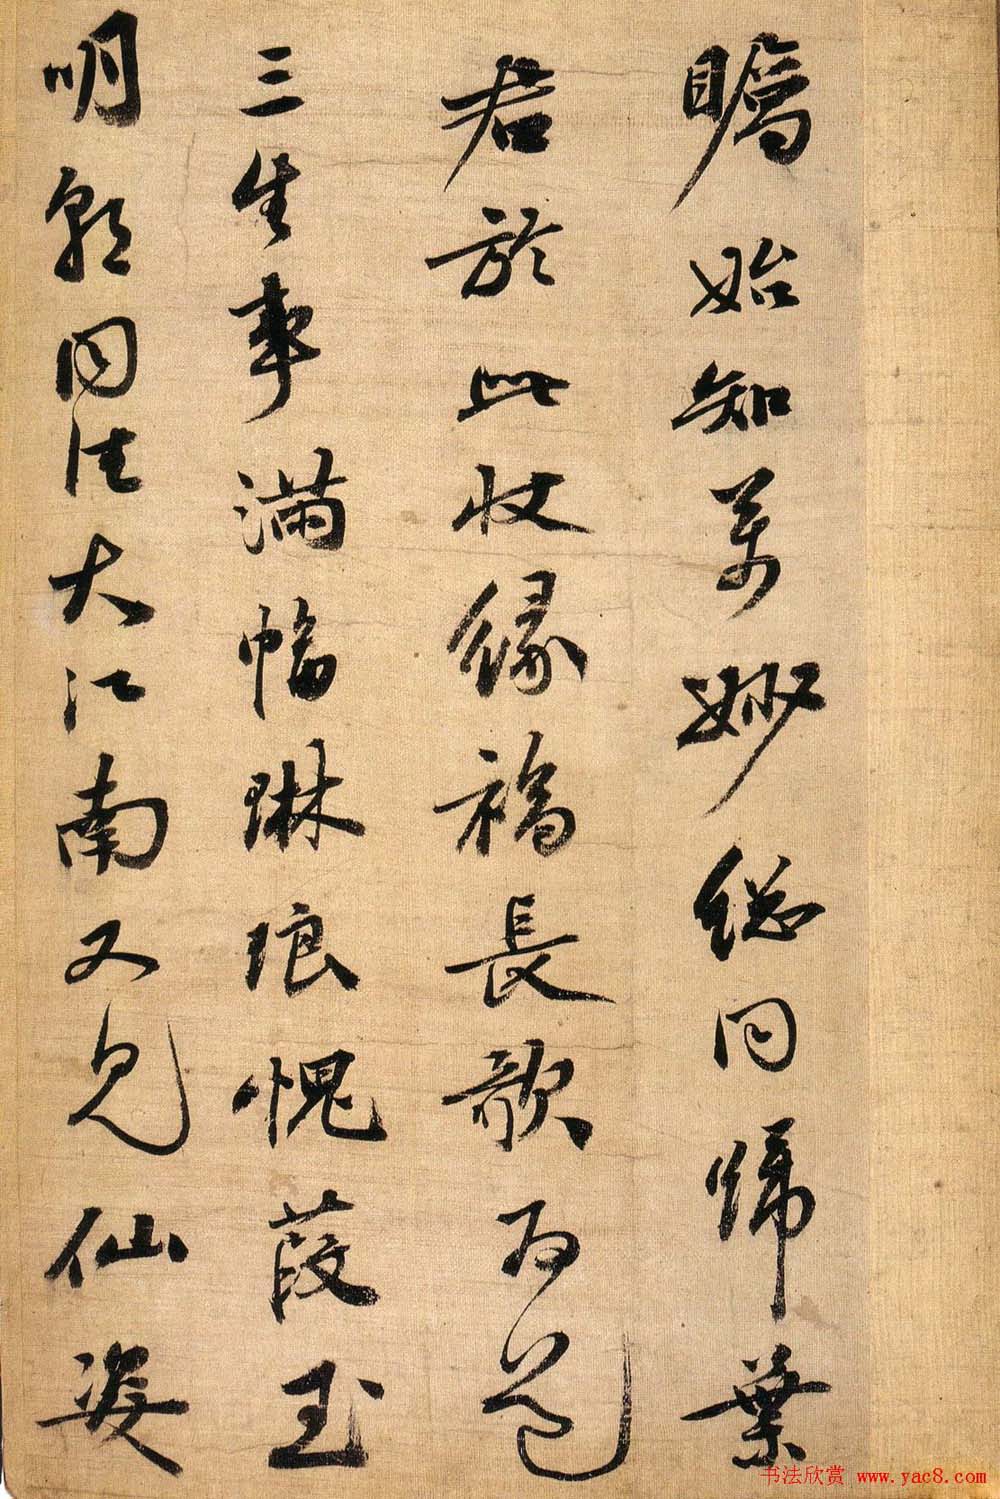 矚始知萬妙總同歸葉
君於此收緣福長歌為道
三生事滿幅琳琅愧葭玉
明朝同往大江南又見仙姿
书法欣赏 www.yac8.com